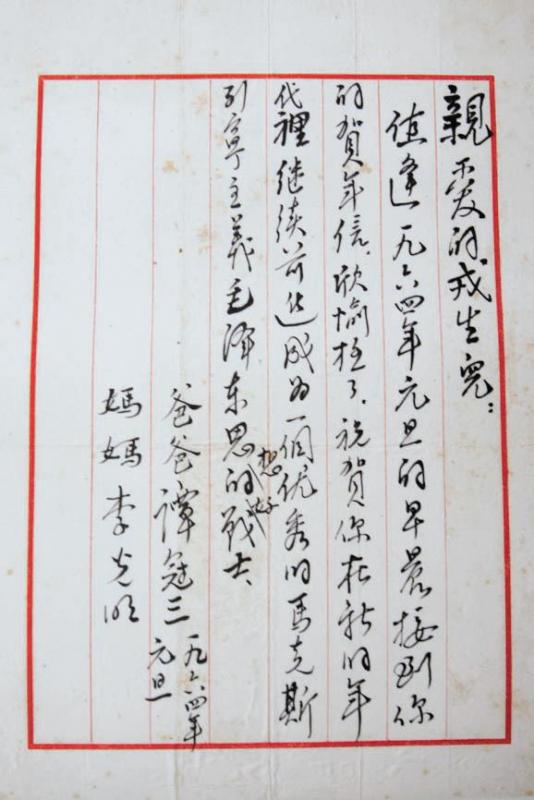 親愛的戎生兒：
值逢一九六四年元旦的早晨接到你
的賀年信，欣愉极了。祝賀你在新的年
代裡继续前进成为一個优秀的馬克斯
列寧主義毛泽东思想的好战士。
爸爸譚冠三 一九六四年
元旦
媽媽李光明